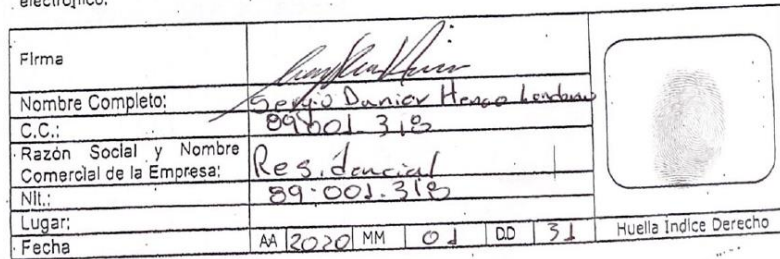 electrónico.
Firma
Nombre Completo: Sergio Danier Henao Londono
C.C.: 89.001.318
Razón Social y Nombre Comercial de la Empresa: Residencial
Nit.: 89.001.318
Lugar:
Fecha AA 2020 MM 01 DD 31
Huella Indice Derecho